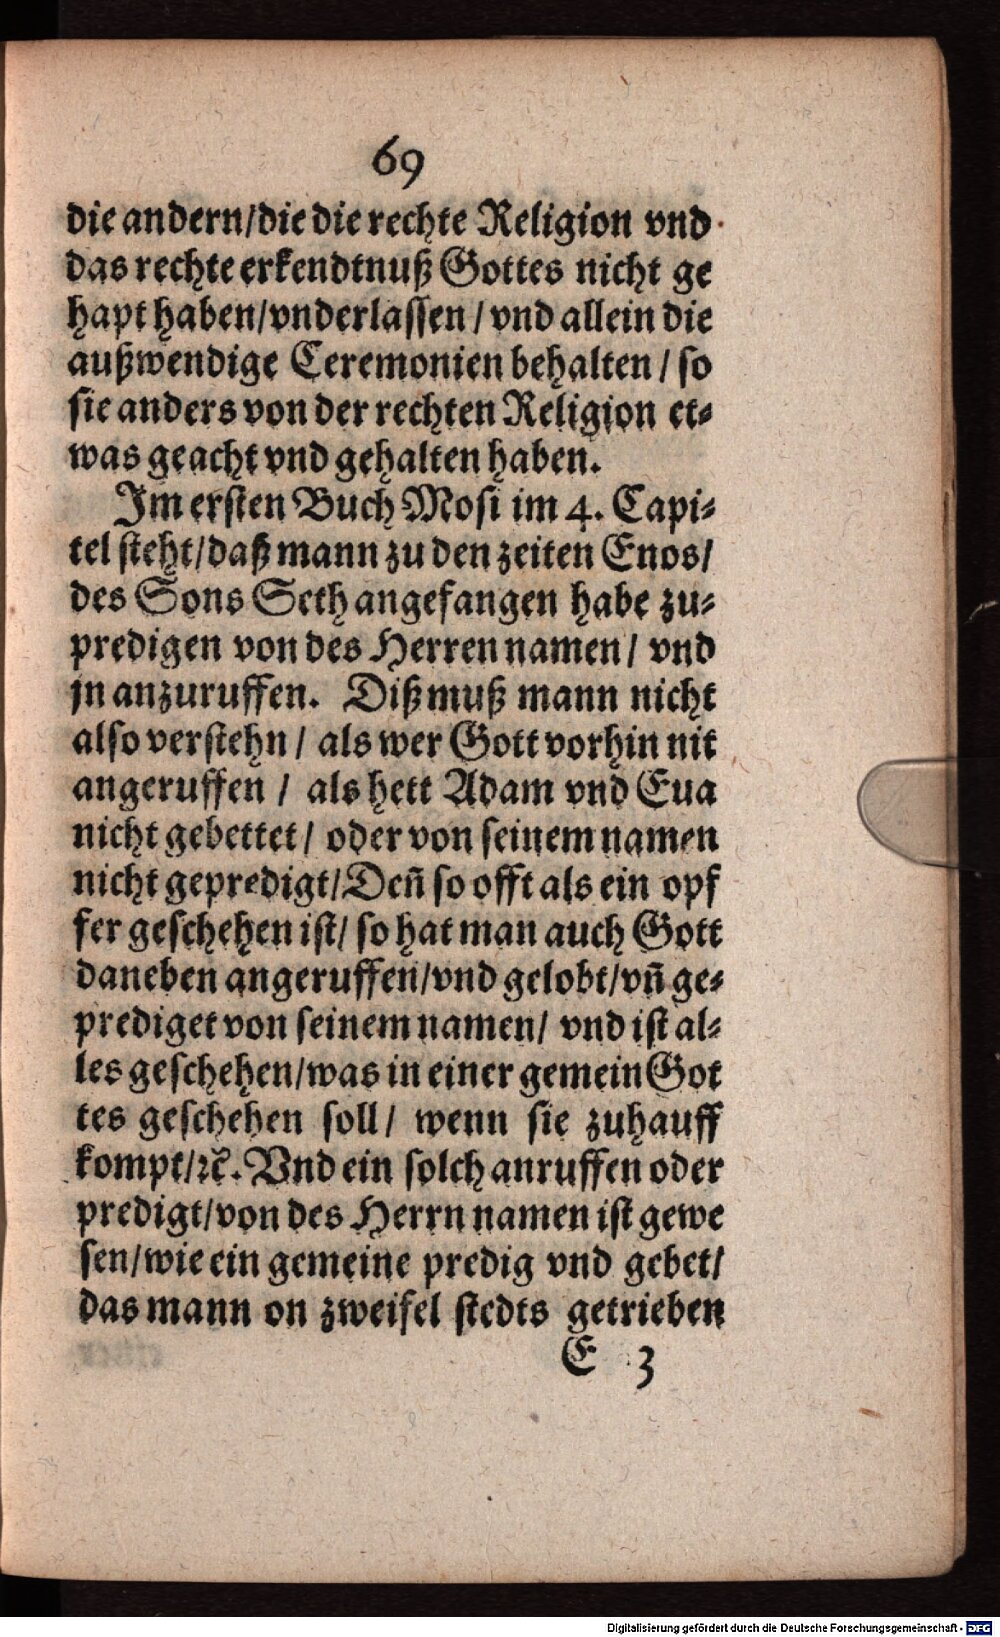 69
die andern/die die rechte Religion vnd
das rechte erkendtnuß Gottes nicht ge
hapt haben/vnderlassen/vnd allein die
außwendige Ceremonien behalten/so
sie anders von der rechten Religion et⸗
was geacht vnd gehalten haben.
Im ersten Buch Mosi im 4. Capi⸗
tel steht/daß mann zu den zeiten Enos/
des Sons Seth angefangen habe zu⸗
predigen von des Herren namen/ vnd
jn anzuruffen. Diß muß mann nicht
also verstehn/ als wer Gott vorhin nit
angeruffen/ als hett Adam vnd Eua
nicht gebettet/ oder von seinem namen
nicht gepredigt/Deñ so offt als ein opf
fer geschehen ist/ so hat man auch Gott
daneben angeruffen/vnd gelobt/vñ ge⸗
prediget von seinem namen/ vnd ist al⸗
les geschehen/was in einer gemein Got
tes geschehen soll/ wenn sie zuhauff
kompt/ꝛc̃. Vnd ein solch anruffen oder
predigt/von des Herrn namen ist gewe
sen/wie ein gemeine predig vnd gebet/
das mann on zweifel stedts getrieben
E 3
Digitalisierung gefördert durch die Deutsche Forschungsgemeinschaft - DFG